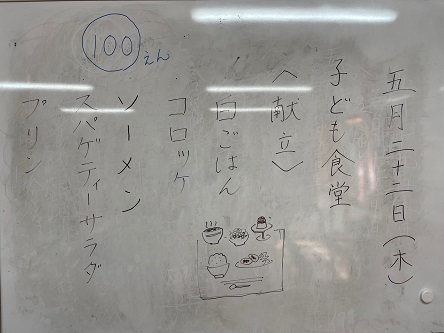 五月二十二日(木)
子ども食堂
〈献立〉
白ごはん
コロッケ
ソーメン
スパゲティーサラダ
プリン
100えん